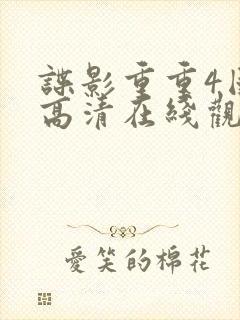 諜影重重4
高清在綫觀
愛笑的棉花